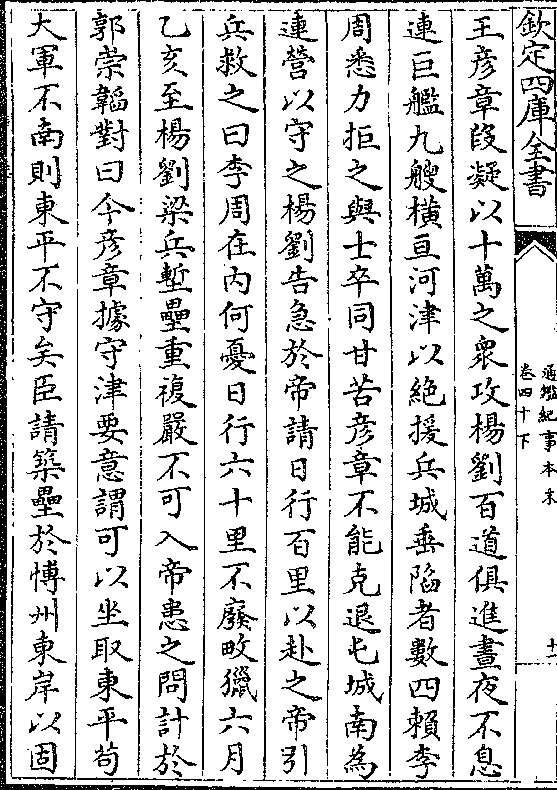 欽定四庫全書
通鑑紀事本末
卷四十下
十一
王彥章段凝以十萬之衆攻楊劉百道俱進晝夜不息
連巨艦九艘橫亘河津以絶援兵城垂陷者數四賴李
周悉力拒之與士卒同甘苦彥章不能克退屯城南為
連營以守之楊劉告急於帝請日行百里以赴之帝引
兵救之曰李周在内何憂日行六十里不廢畋獵六月
乙亥至楊劉梁兵塹壘重複嚴不可入帝患之問計於
郭崇韜對曰今彥章據守津要意謂可以坐取東平苟
大軍不南則東平不守矣臣請築壘於博州東岸以固